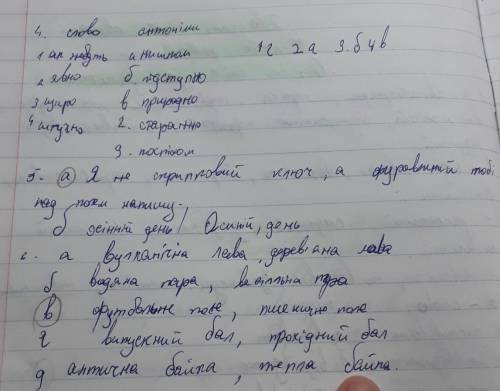 4. слово антоніми
1 а нишком 1г 2а 3.б 4в
2 явно б підступно
3 щиро в природно
4 штучно г. старанно
д. поспіхом
5. а Я не скрипковий ключ, а журавлиний тобі
над полем напишу.
б осінній день, Осиній, день
6. а вулканічна лава, деревяна лава
б водяна пара, весільна пара
в футбольне поле, пшеничне поле
г випускний бал, прохідний бал
д антична байка, тепла байка.